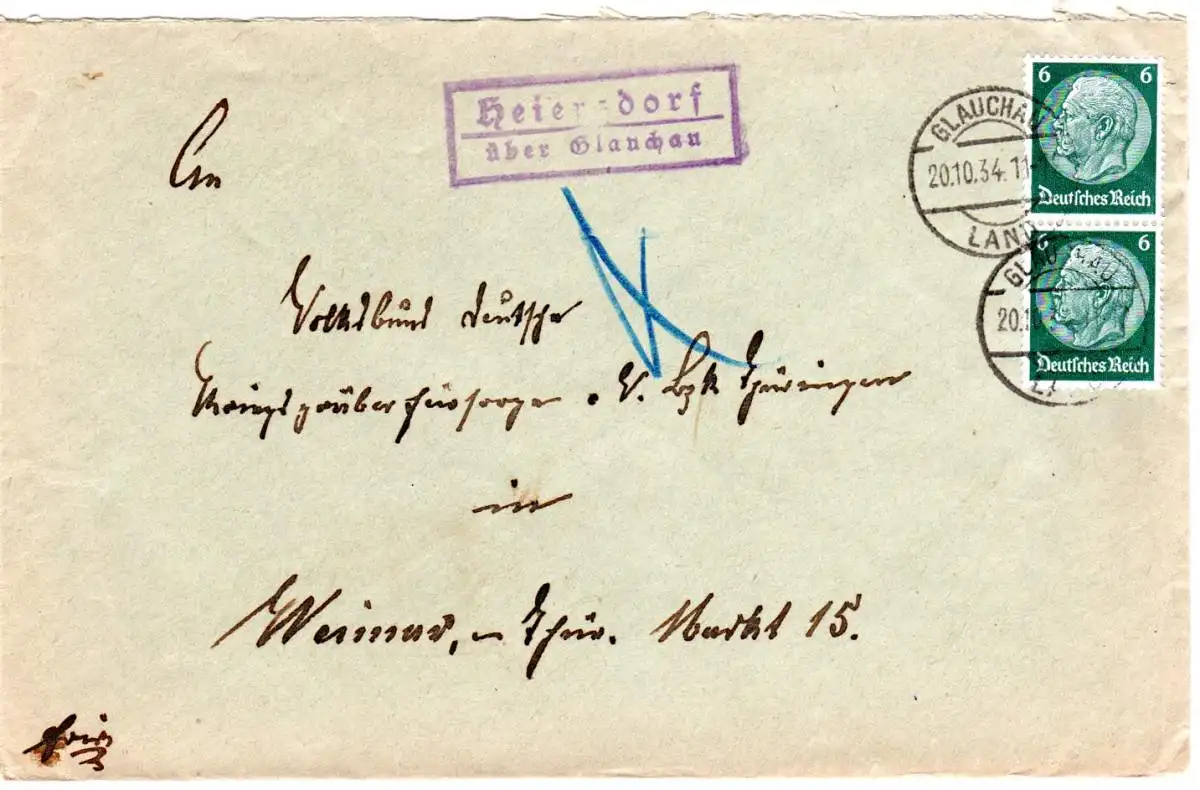 Heiersdorf
über Glauchau
GLAUCHAU
20.10.34. 11-
LAND
6 6
Deutsches Reich
GLAUCHAU
20.10
6 6
Deutsches Reich
An
Volksbund deutscher
Kriegsgräberfürsorge e. V. Bzk Thüringen
in
Weimar, in Thür. Markt 15.